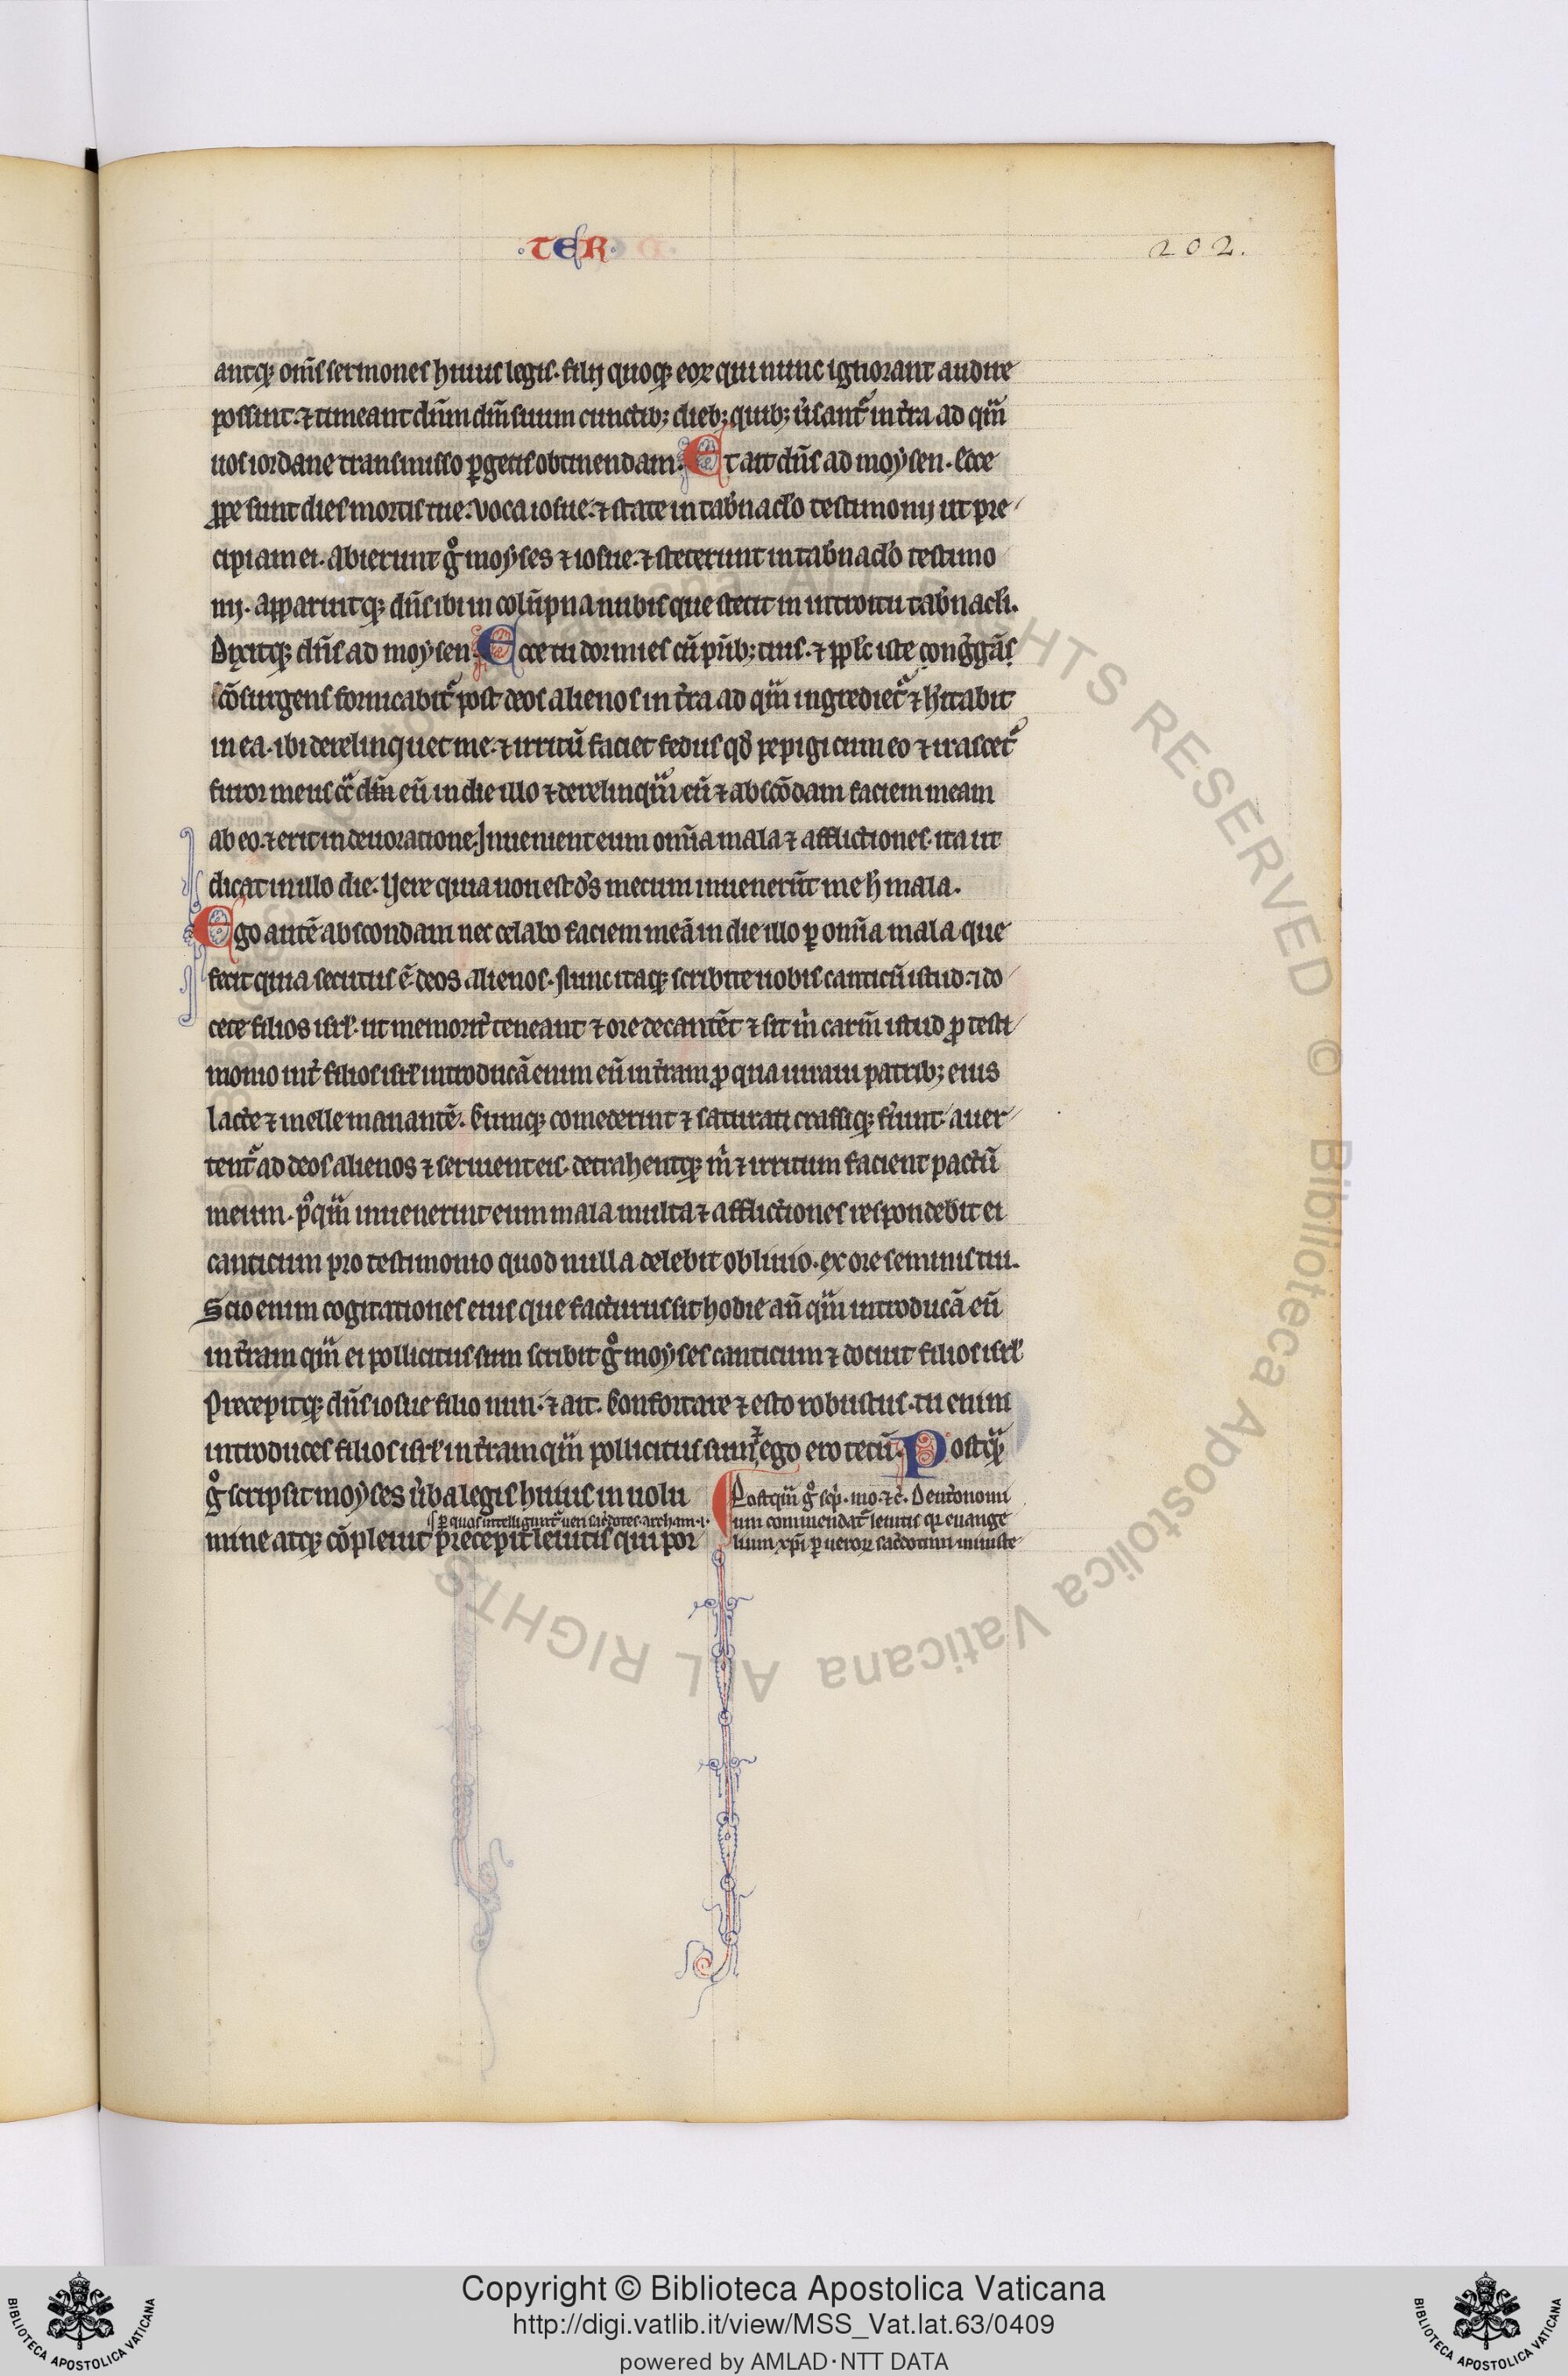 ·TER·
202.
antq; om̄s sermones huius legis. filij quoq; eoꝝ qui nunc ignorant audire
possint. ⁊ timeant dn̄m dm̄ suum cunctib; dieb; quib; ũsant̃ in t̃ra ad qm̃
uos iordane transmisso ꝑgetis obtinendam. Et ait dn̄s ad moysen. Ecce
ꝓpe sunt dies mortis tue. uoca iosue. ⁊ state in tab̃nacl̃o testimonij ut pre
cipiam ei. abierunt gͦ moyses ⁊ iosue. ⁊ steterunt in tab̃nacl̃o testimo
nij. apparuitq; dn̄s ibi in colūpna nubis que stetit in introitu tab̃nacli.
Dixitq; dn̄s ad moysen. Ecce tu dormies cū pr̄ib; tuis. ⁊ ppl̃s iste cong̃gās
cōsurgens fornicabit̃ post deos alienos in t̃ra ad qm̃ ingrediet̃ ⁊ hitabit
in ea. ibi derelinquet me. ⁊ irritū faciet fedus qd̃ pepigi cum eo ⁊ irascet̃
furor meus cc̃ dm̄ eū in die illo ⁊ derelinquā eū ⁊ abscōdam faciem meam
ab eo. ⁊ erit in deuoratione. Inuenient eum om̄ia mala ⁊ afflictiones. ita ut
dicat in illo die. Vere quia non est d̃s mecum inuenerūt me h̃ mala.
Ego autē abscondam nec celabo faciem meā in die illo ꝑ om̄ia mala que
fecit quia secutus ē deos alienos. Nunc itaq; scribite uobis canticū istud. ⁊ do
cete filios isrl̃. ut memorit̃ teneant ⁊ ore decantēt ⁊ sit m̃ carm̄ istud ꝓ testi
monio int̃ filios isrl̃ introducā enim eū in t̃ram ꝓ qua iuraui patrib; eius
lacte ⁊ melle manantē. Cumq; comederint ⁊ saturati crassiq; fũint. auer
tent̃ ad deos alienos ⁊ seruient eis. detrahentq; m̃ ⁊ irritum facient pactū
meum. pͦqm̃ inuenerint eum mala multa ⁊ afflictiones respondebit ei
canticum pro testimonio quod nulla delebit obliuio. ex ore seminis tui.
Scio enim cogitationes eius que facturus sit hodie añ qm̃ introducā eū
in t̃ram qm̃ ei pollicitus sum scribit gͦ moyses canticum ⁊ docuit filios isrl̃
Precepitq; dn̄s iosue filio nun. ⁊ ait. Confortare ⁊ esto robustus. tu enim
introduces filios isrl̃ in t̃ram qm̃ pollicitus sum ⁊ ego ero tecū. Postq̃
gͦ scripsit moyses ũba legis huius in uolu
mine atq; cōpleuit precepit leuitis qui por
.s. ꝑ quos intelligunt̃ ueri sac̃dotes. archam. i.
Postqm̃ gͦ sc̃p. mo. ⁊c̃. Deut̃onomi
um commendat̃ leuitis qr̃ euange
lium xp̃i ꝑ ueroꝝ sac̃dotum ministe
Copyright © Biblioteca Apostolica Vaticana
http://digi.vatlib.it/view/MSS_Vat.lat.63/0409
powered by AMLAD·NTT DATA